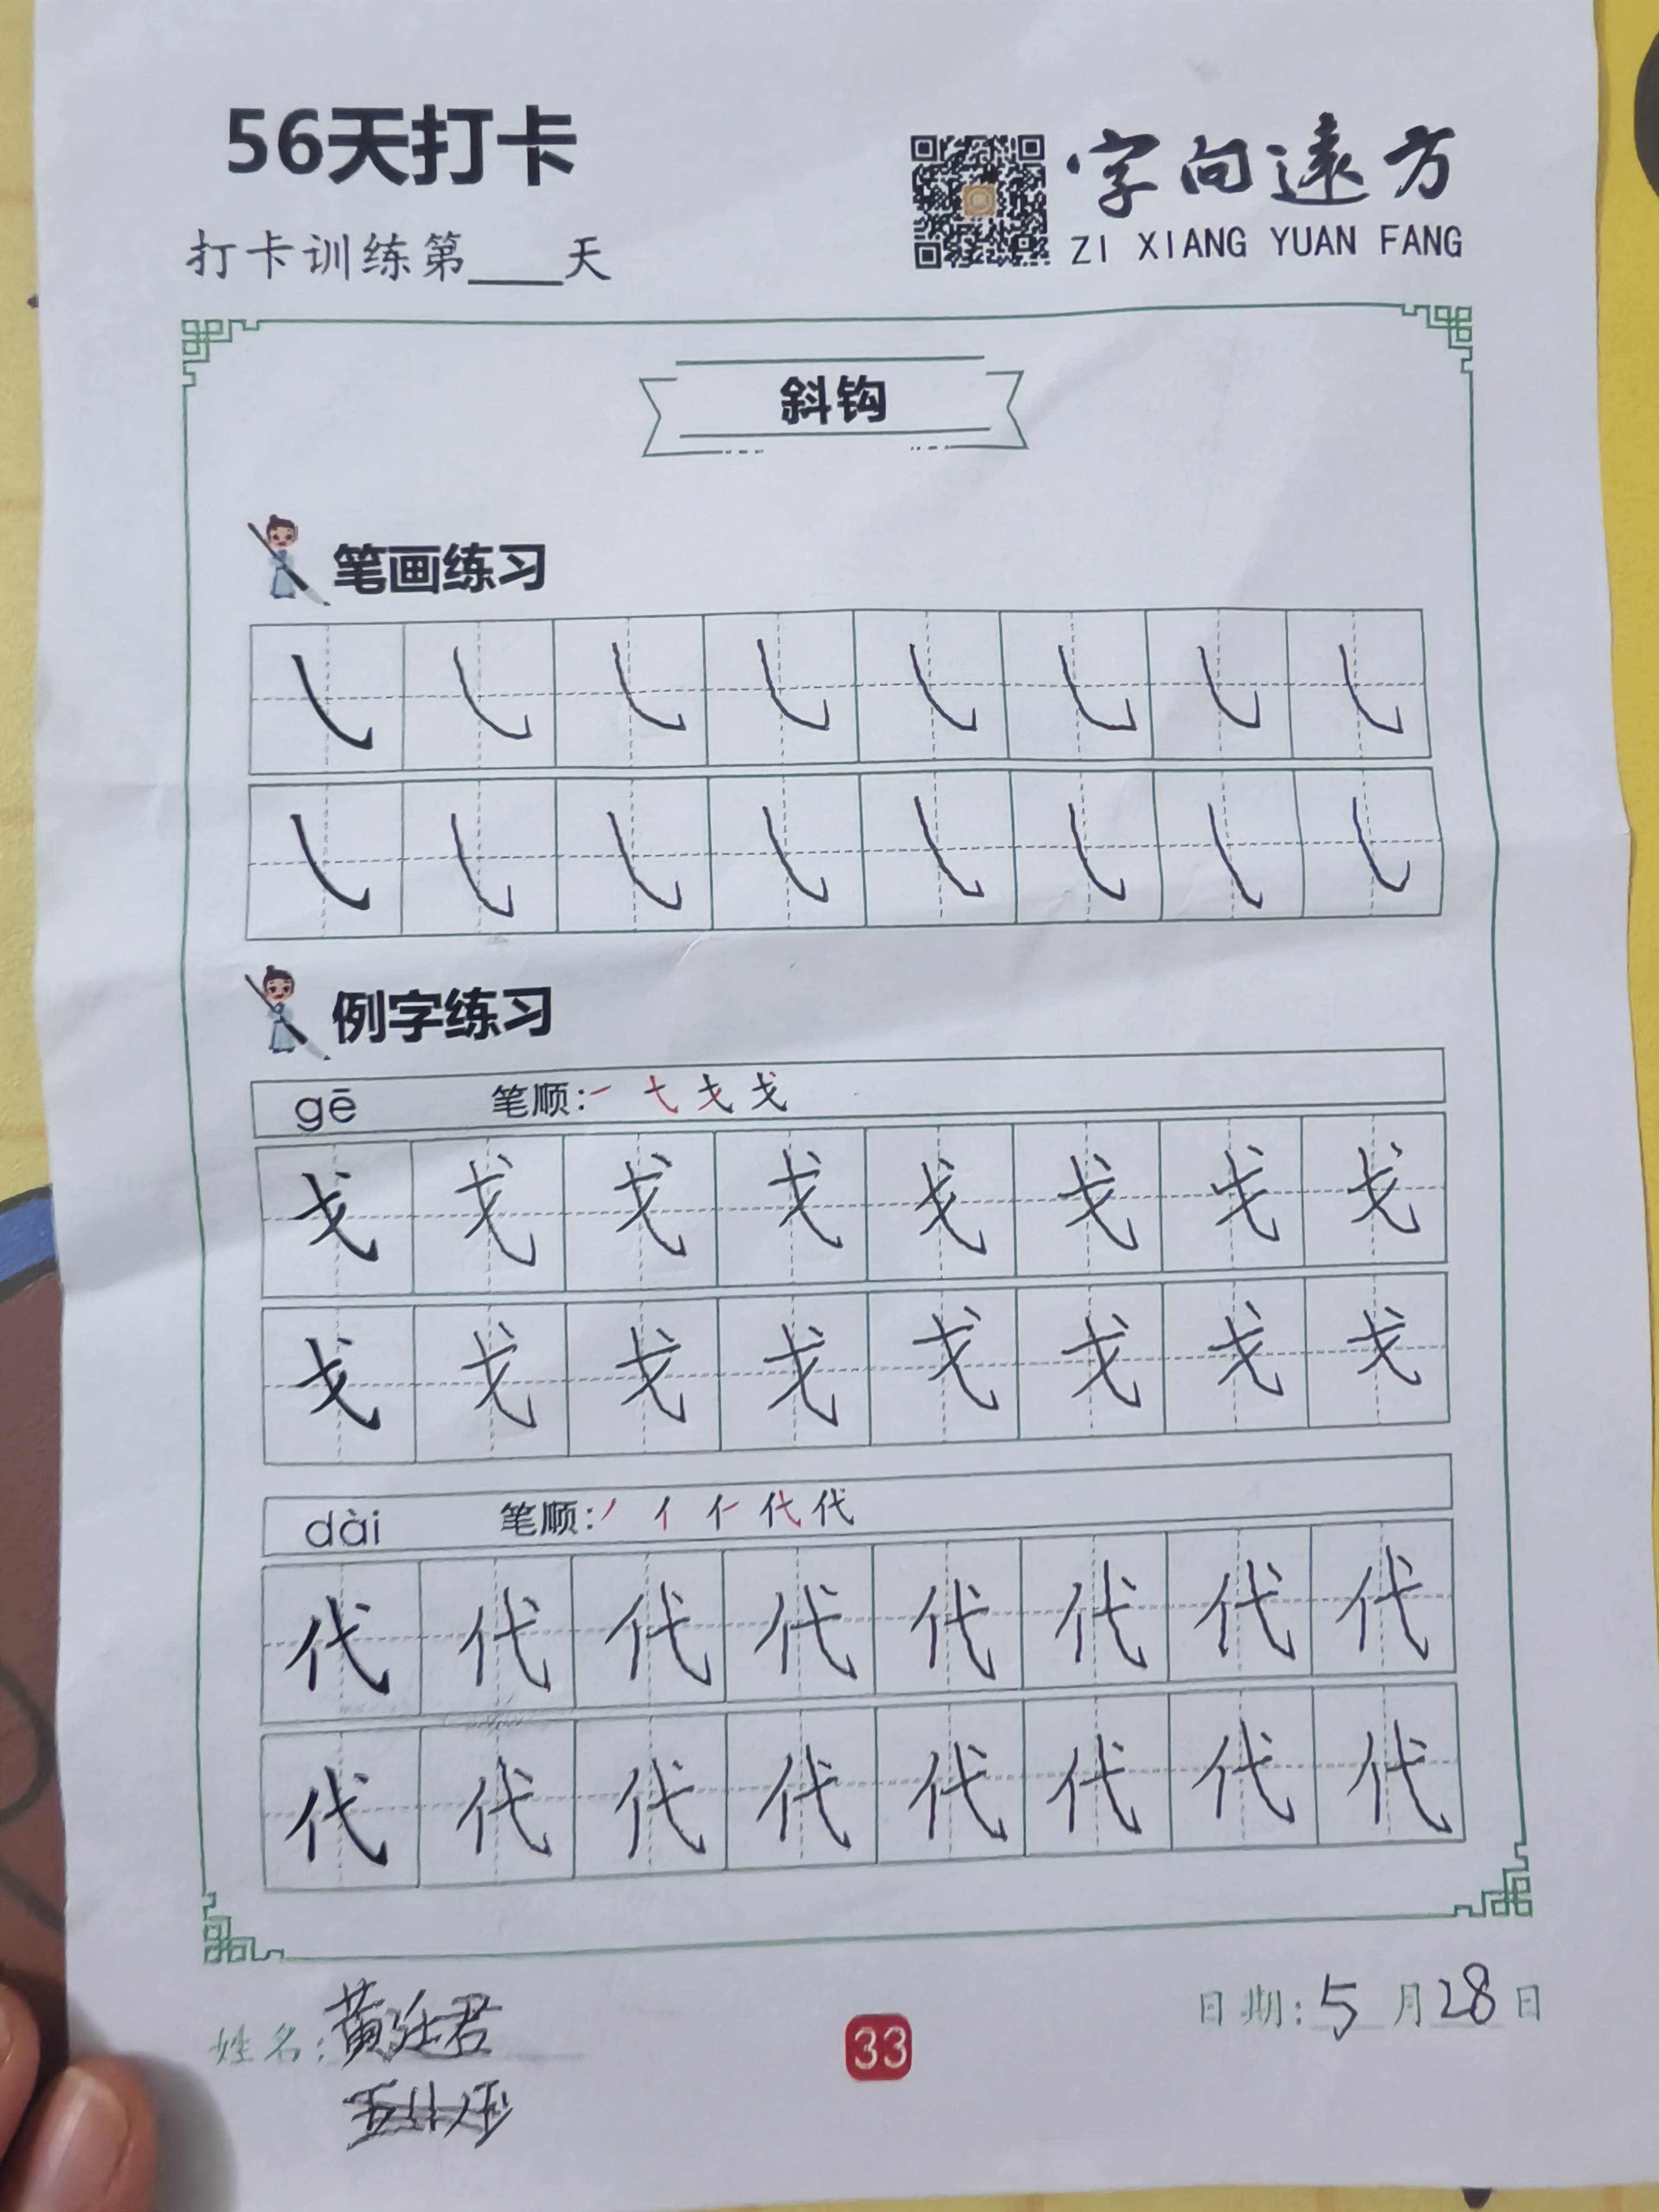 56天打卡
字向遠方
ZI XIANG YUAN FANG
打卡训练第____天
斜钩
笔画练习
㇂ ㇂ ㇂ ㇂ ㇂ ㇂ ㇂ ㇂
㇂ ㇂ ㇂ ㇂ ㇂ ㇂ ㇂ ㇂
例字练习
gē 笔顺:一 弋 戈 戈
戈 戈 戈 戈 戈 戈 戈 戈
戈 戈 戈 戈 戈 戈 戈 戈
dài 笔顺:丿 亻 仁 代 代
代 代 代 代 代 代 代 代
代 代 代 代 代 代 代 代
姓名: 黄 君
日期:5月28日
33